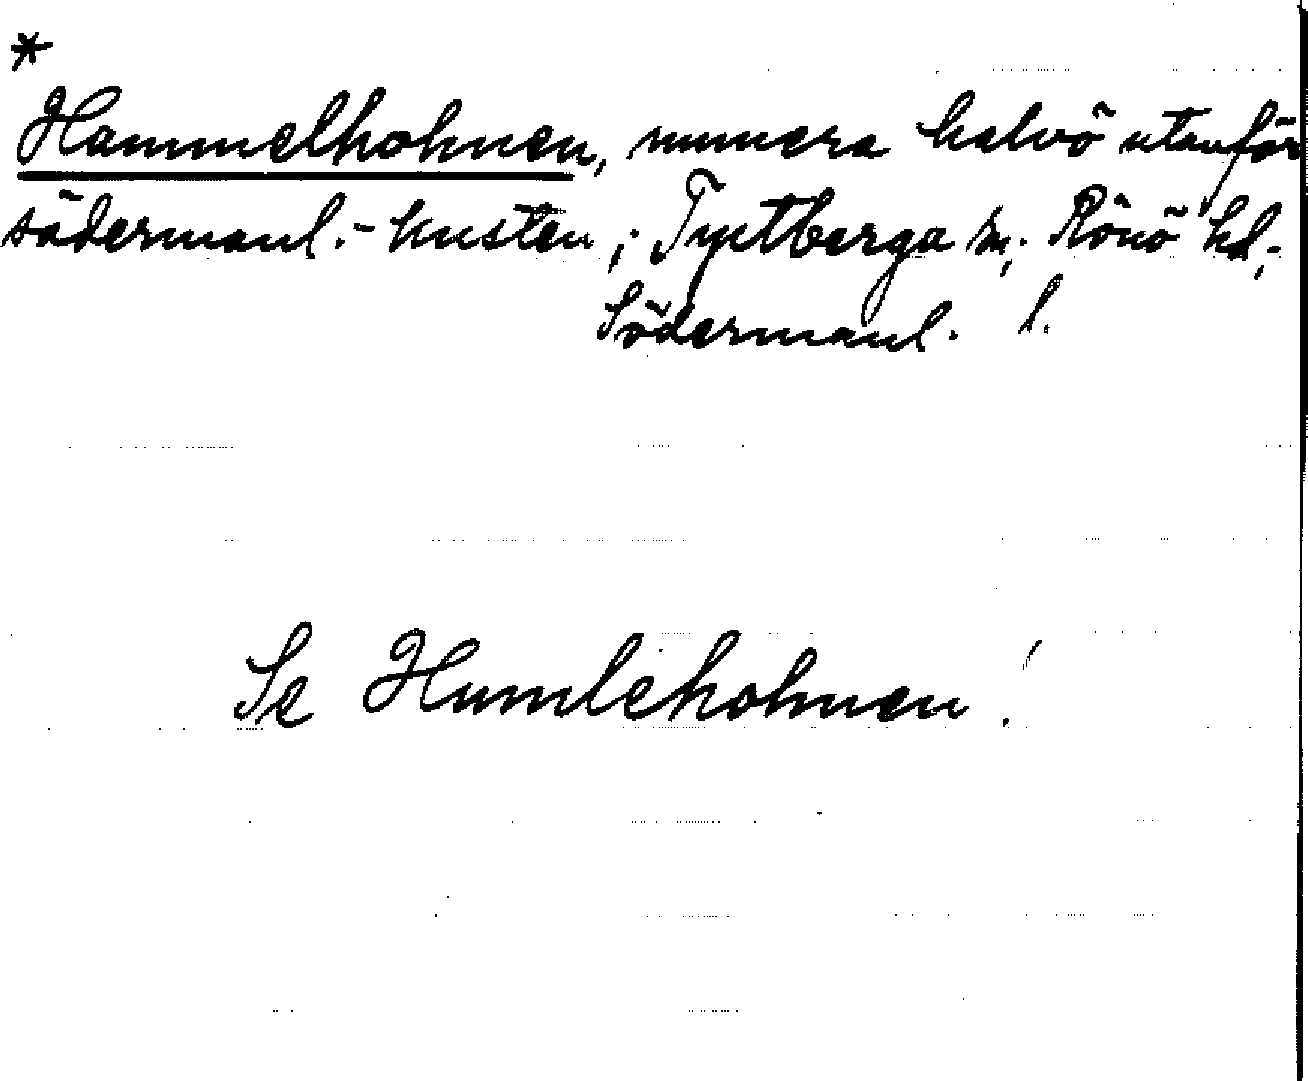 *
Hammelholmen, numera halvö utanför
södermanl.-kusten; Tystberga sn, Rönö hd,
Södermanl. l.
Se Humleholmen!